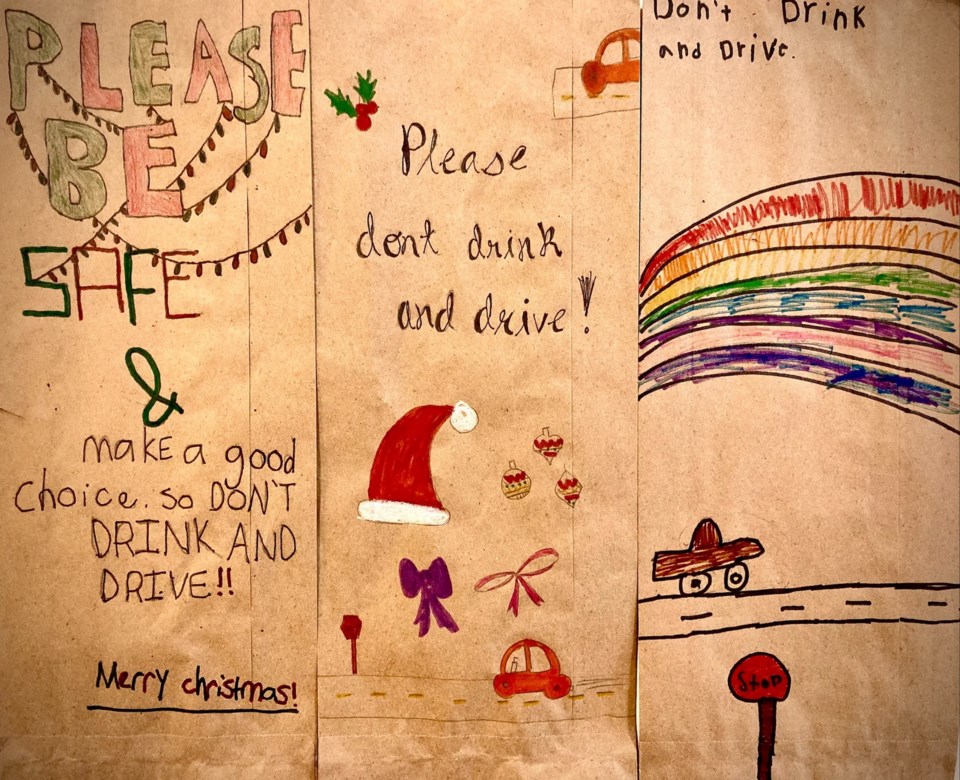 PLEASE
BE
SAFE
&
make a good
Choice. so DON'T
DRINK AND
DRIVE!!
Merry christmas!
Please
dont drink
and drive!
Don't Drink
and Drive.
Stop